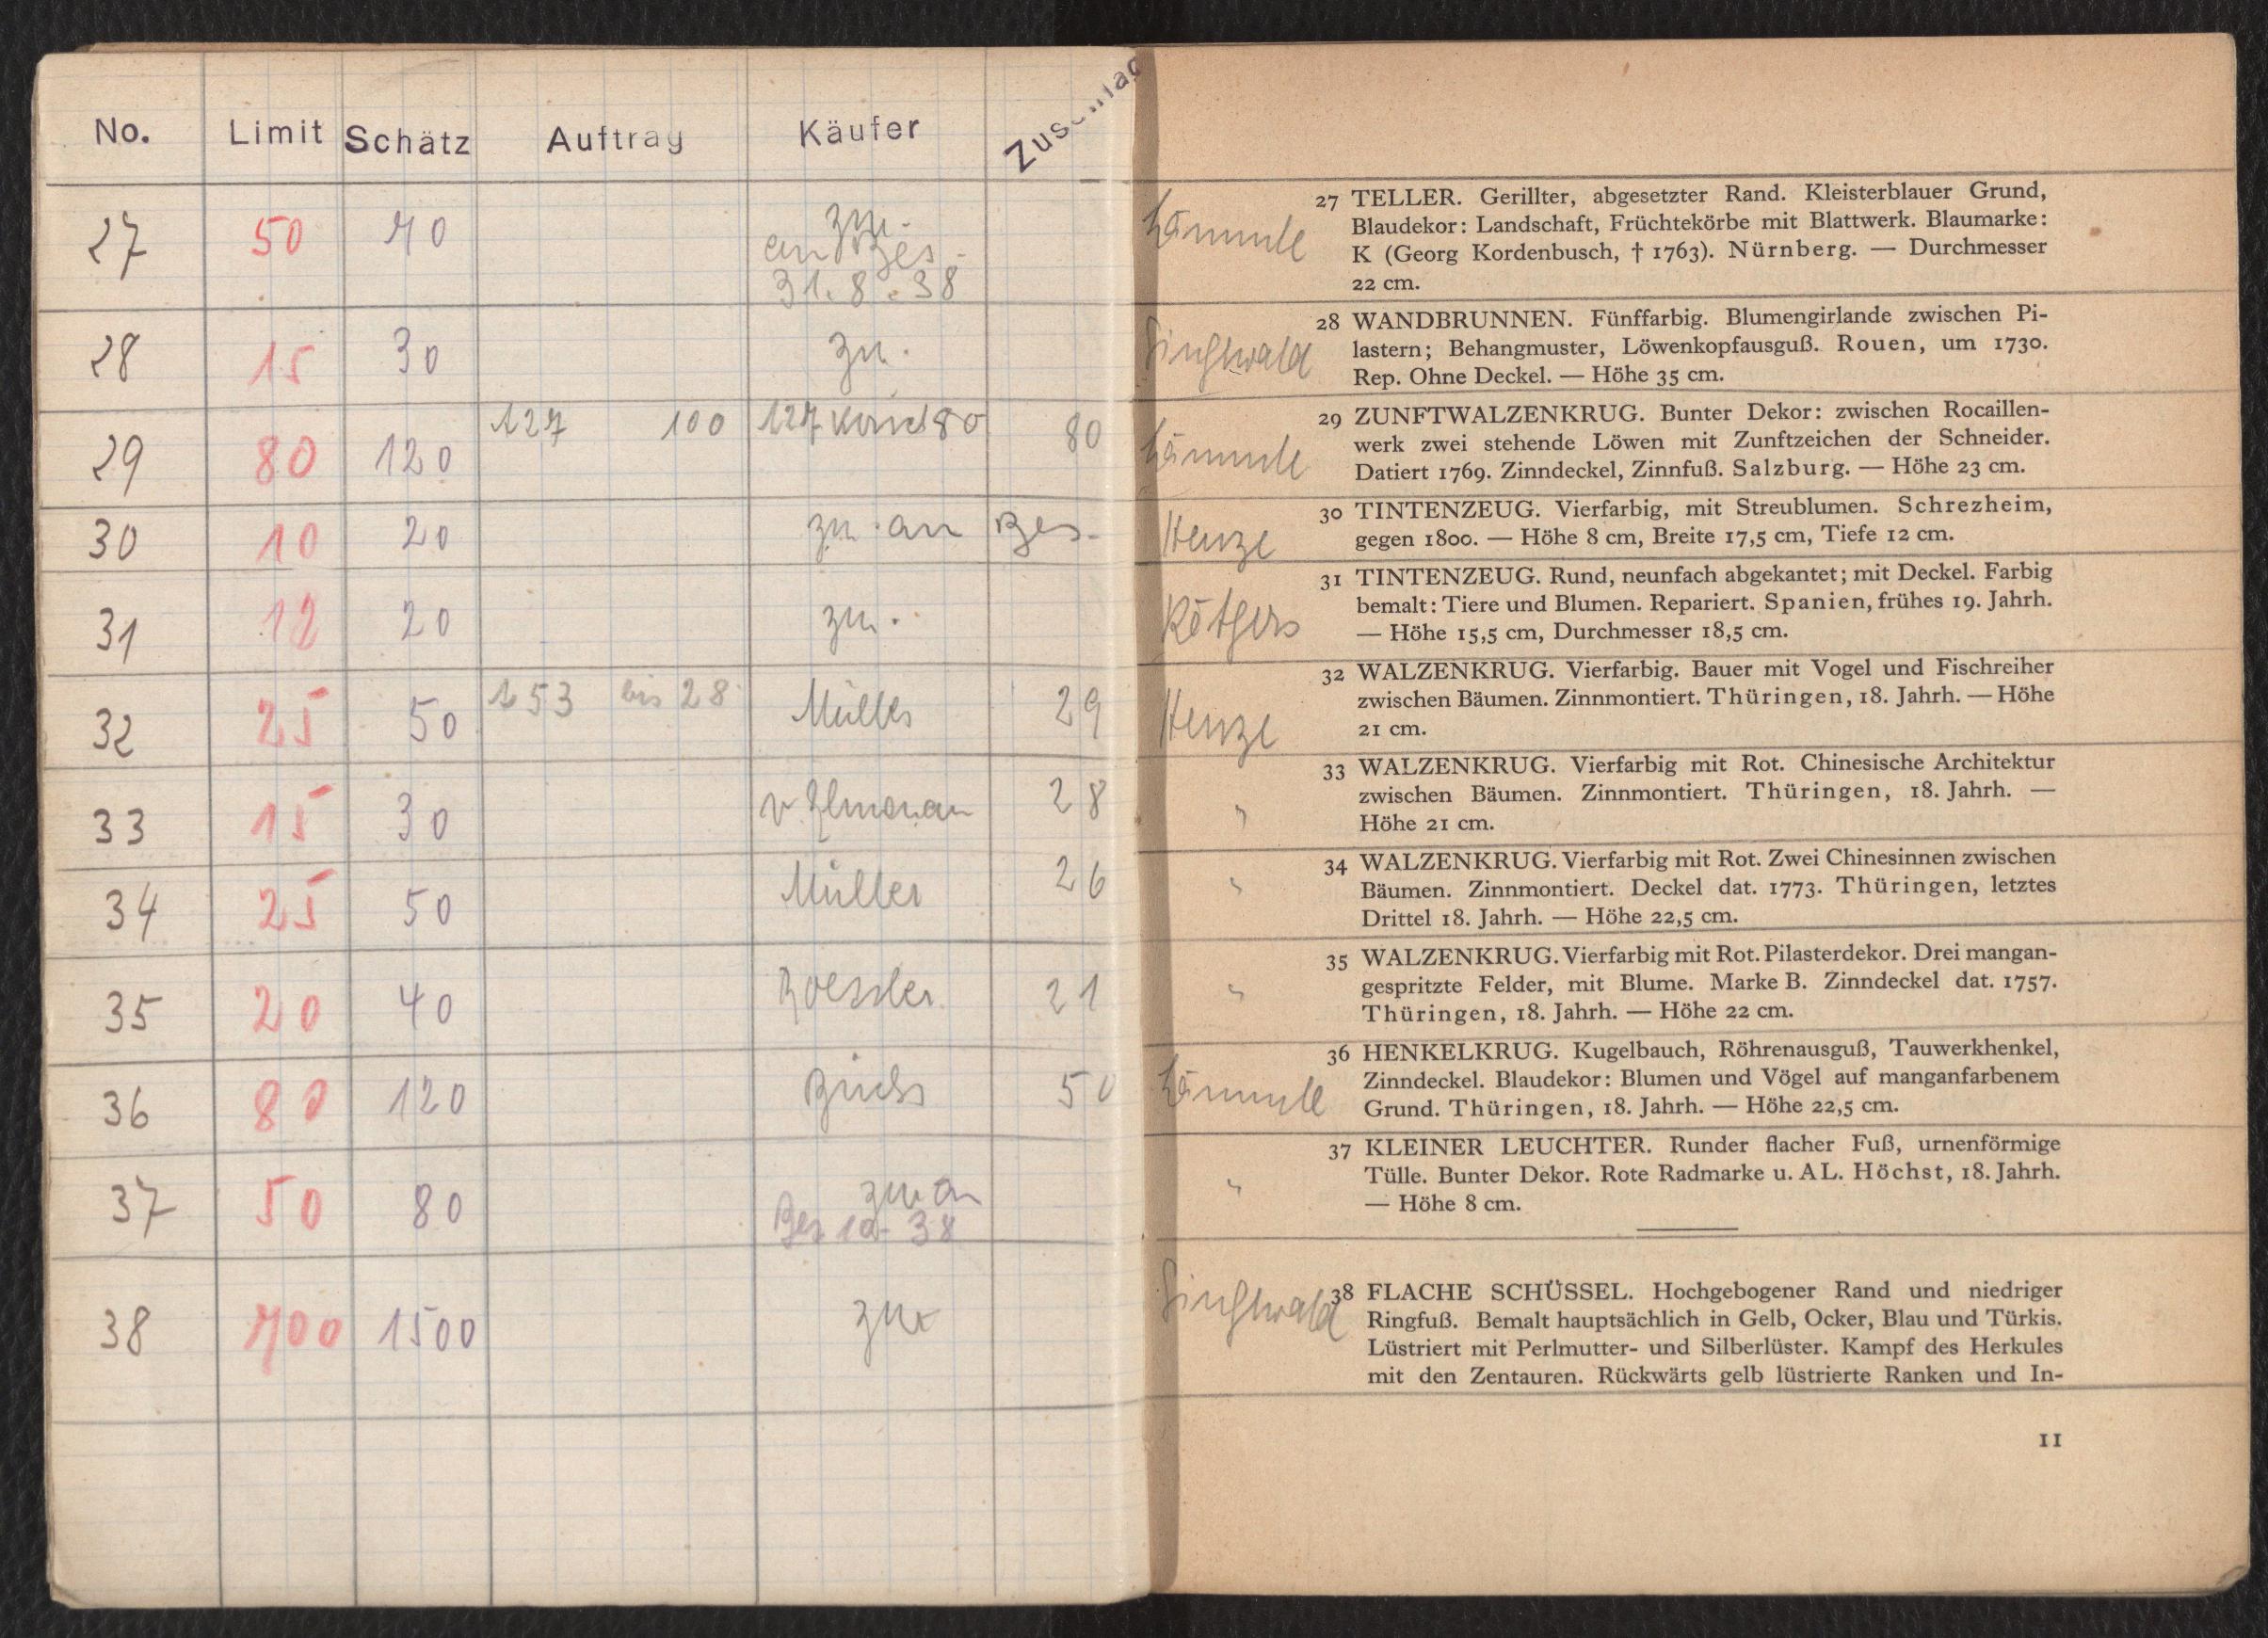 No. Limit Schätz Auftrag Käufer Zuschlag
27 50 70 zu.
an Bes.
31.8.38
28 15 30 zu.
29 80 120 127 100 127 80 80
30 10 20 zu. an Bes.
31 12 20 zu.
32 25 50 153 bis 28 Müller 29
33 15 30 28
34 25 50 Müller 26
35 20 40 Roessler 21
36 80 120 50
37 50 80 zu an
Bes 10. 38
38 700 1500 zu
Lämmle
27 TELLER. Gerillter, abgesetzter Rand. Kleisterblauer Grund,
Blaudekor: Landschaft, Früchtekörbe mit Blattwerk. Blaumarke:
K (Georg Kordenbusch, † 1763). Nürnberg. — Durchmesser
22 cm.
Singwald
28 WANDBRUNNEN. Fünffarbig. Blumengirlande zwischen Pi-
lastern; Behangmuster, Löwenkopfausguß. Rouen, um 1730.
Rep. Ohne Deckel. — Höhe 35 cm.
Lämmle
29 ZUNFTWALZENKRUG. Bunter Dekor: zwischen Rocaillen-
werk zwei stehende Löwen mit Zunftzeichen der Schneider.
Datiert 1769. Zinndeckel, Zinnfuß. Salzburg. — Höhe 23 cm.
Henze
30 TINTENZEUG. Vierfarbig, mit Streublumen. Schrezheim,
gegen 1800. — Höhe 8 cm, Breite 17,5 cm, Tiefe 12 cm.
Rötgers
31 TINTENZEUG. Rund, neunfach abgekantet; mit Deckel. Farbig
bemalt: Tiere und Blumen. Repariert. Spanien, frühes 19. Jahrh.
— Höhe 15,5 cm, Durchmesser 18,5 cm.
Henze
32 WALZENKRUG. Vierfarbig. Bauer mit Vogel und Fischreiher
zwischen Bäumen. Zinnmontiert. Thüringen, 18. Jahrh. — Höhe
21 cm.
"
33 WALZENKRUG. Vierfarbig mit Rot. Chinesische Architektur
zwischen Bäumen. Zinnmontiert. Thüringen, 18. Jahrh. —
Höhe 21 cm.
"
34 WALZENKRUG. Vierfarbig mit Rot. Zwei Chinesinnen zwischen
Bäumen. Zinnmontiert. Deckel dat. 1773. Thüringen, letztes
Drittel 18. Jahrh. — Höhe 22,5 cm.
"
35 WALZENKRUG. Vierfarbig mit Rot. Pilasterdekor. Drei mangan-
gespritzte Felder, mit Blume. Marke B. Zinndeckel dat. 1757.
Thüringen, 18. Jahrh. — Höhe 22 cm.
Lämmle
36 HENKELKRUG. Kugelbauch, Röhrenausguß, Tauwerkhenkel,
Zinndeckel. Blaudekor: Blumen und Vögel auf manganfarbenem
Grund. Thüringen, 18. Jahrh. — Höhe 22,5 cm.
"
37 KLEINER LEUCHTER. Runder flacher Fuß, urnenförmige
Tülle. Bunter Dekor. Rote Radmarke u. AL. Höchst, 18. Jahrh.
— Höhe 8 cm.
Singwald
38 FLACHE SCHÜSSEL. Hochgebogener Rand und niedriger
Ringfuß. Bemalt hauptsächlich in Gelb, Ocker, Blau und Türkis.
Lüstriert mit Perlmutter- und Silberlüster. Kampf des Herkules
mit den Zentauren. Rückwärts gelb lüstrierte Ranken und In-
11